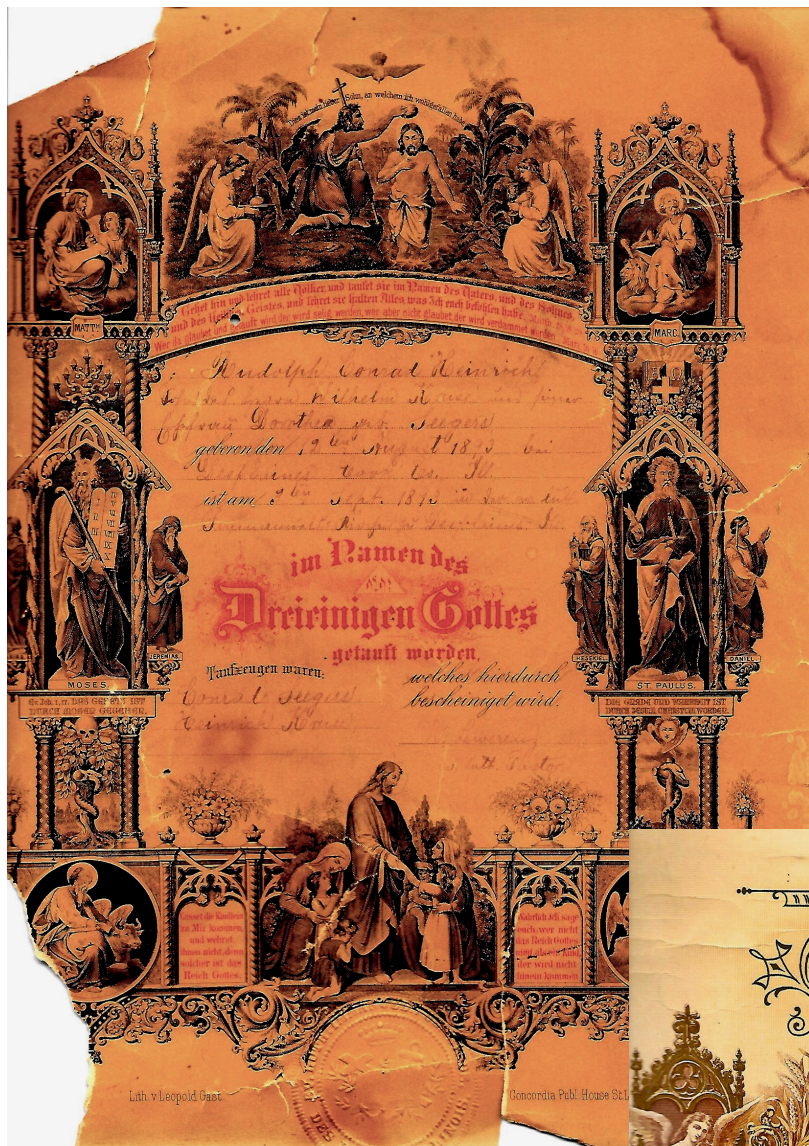 Dies ist mein lieber Sohn, an welchem ich wohlgefallen habe
Gehet hin und lehret alle Völker, und taufet sie im Namen des Vaters, und des Sohnes,
und des Heiligen Geistes, und lehret sie halten Alles, was Ich euch befohlen habe.
Wer da glaubet und getauft wird, der wird selig werden, wer aber nicht glaubet, der wird verdammet werden.
MATTH.
MARC.
Rudolph Conrad Heinrich
Wilhelm Kruse und seiner
Ehefrau Dorothea geb. Seegers
geboren den 12ten August 1893 bei
Desplaines Cook Co. Ill.
ist am 3ten Sept. 1893
Desplaines Ill.
im Namen des
Dreieinigen Gottes
getauft worden
Taufzeugen waren:
welches hierdurch
bescheiniget wird.
Conrad Seegers
Heinrich Kruse
luth. Pastor
JEREMIAS.
HESEKIEL
DANIEL.
MOSES.
ST. PAULUS.
Ev. Joh. 1, 17. DAS GESETZ IST
DURCH MOSEN GEGEBEN.
DIE GNADE UND WAHRHEIT IST
DURCH JESUM CHRISTUM WORDEN.
Lasset die Kindlein
zu Mir kommen,
und wehret
ihnen nicht, denn
solcher ist das
Reich Gottes.
Wahrlich Ich sage
euch: wer nicht
das Reich Gottes
der wird nicht
hinein kommen
Lith. v. Leopold Gast.
Concordia Publ. House St. L